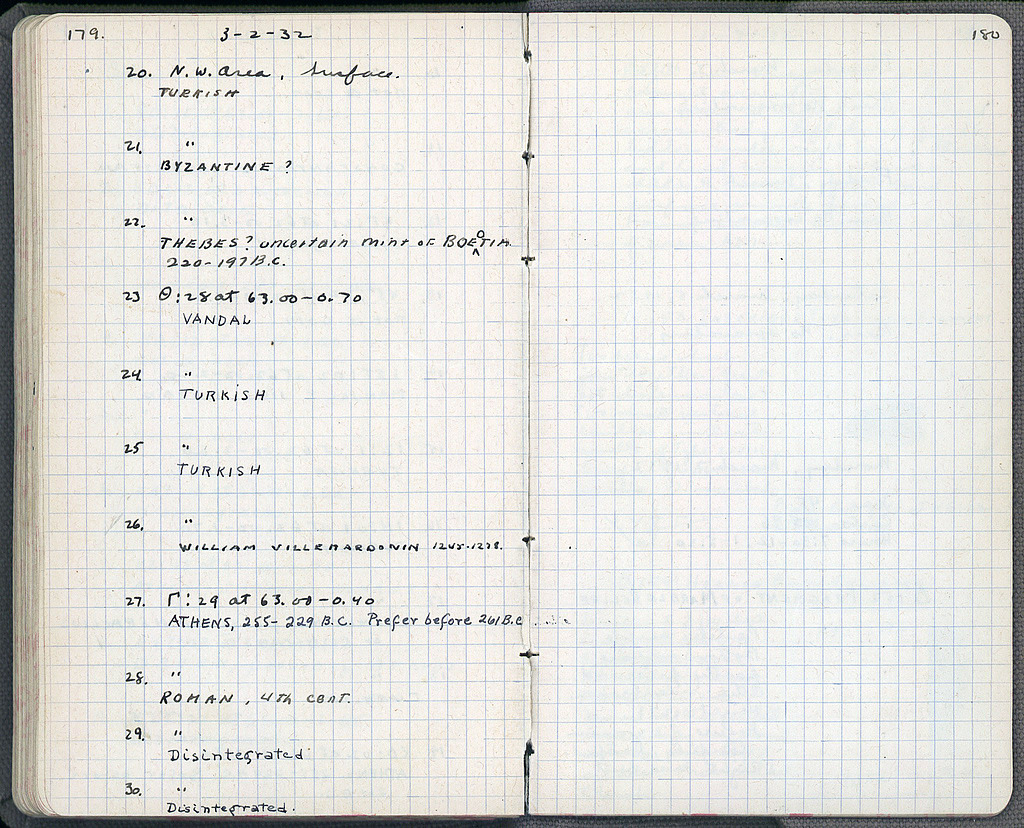 179. 3-2-32
20. N.W. Area, Surface.
TURKISH
21. "
BYZANTINE ?
22. "
THEBES? uncertain mint of BOEOTIA
220-197 B.C.
23 Θ:28 at 63.00-0.70
VANDAL
24 "
TURKISH
25 "
TURKISH
26. "
WILLIAM VILLEHARDONIN 1245-1278.
27. Γ:29 at 63.00-0.40
ATHENS, 255-229 B.C. Prefer before 261 B.C
28. "
ROMAN, 4th cent.
29. "
Disintegrated
30. "
Disintegrated.
180